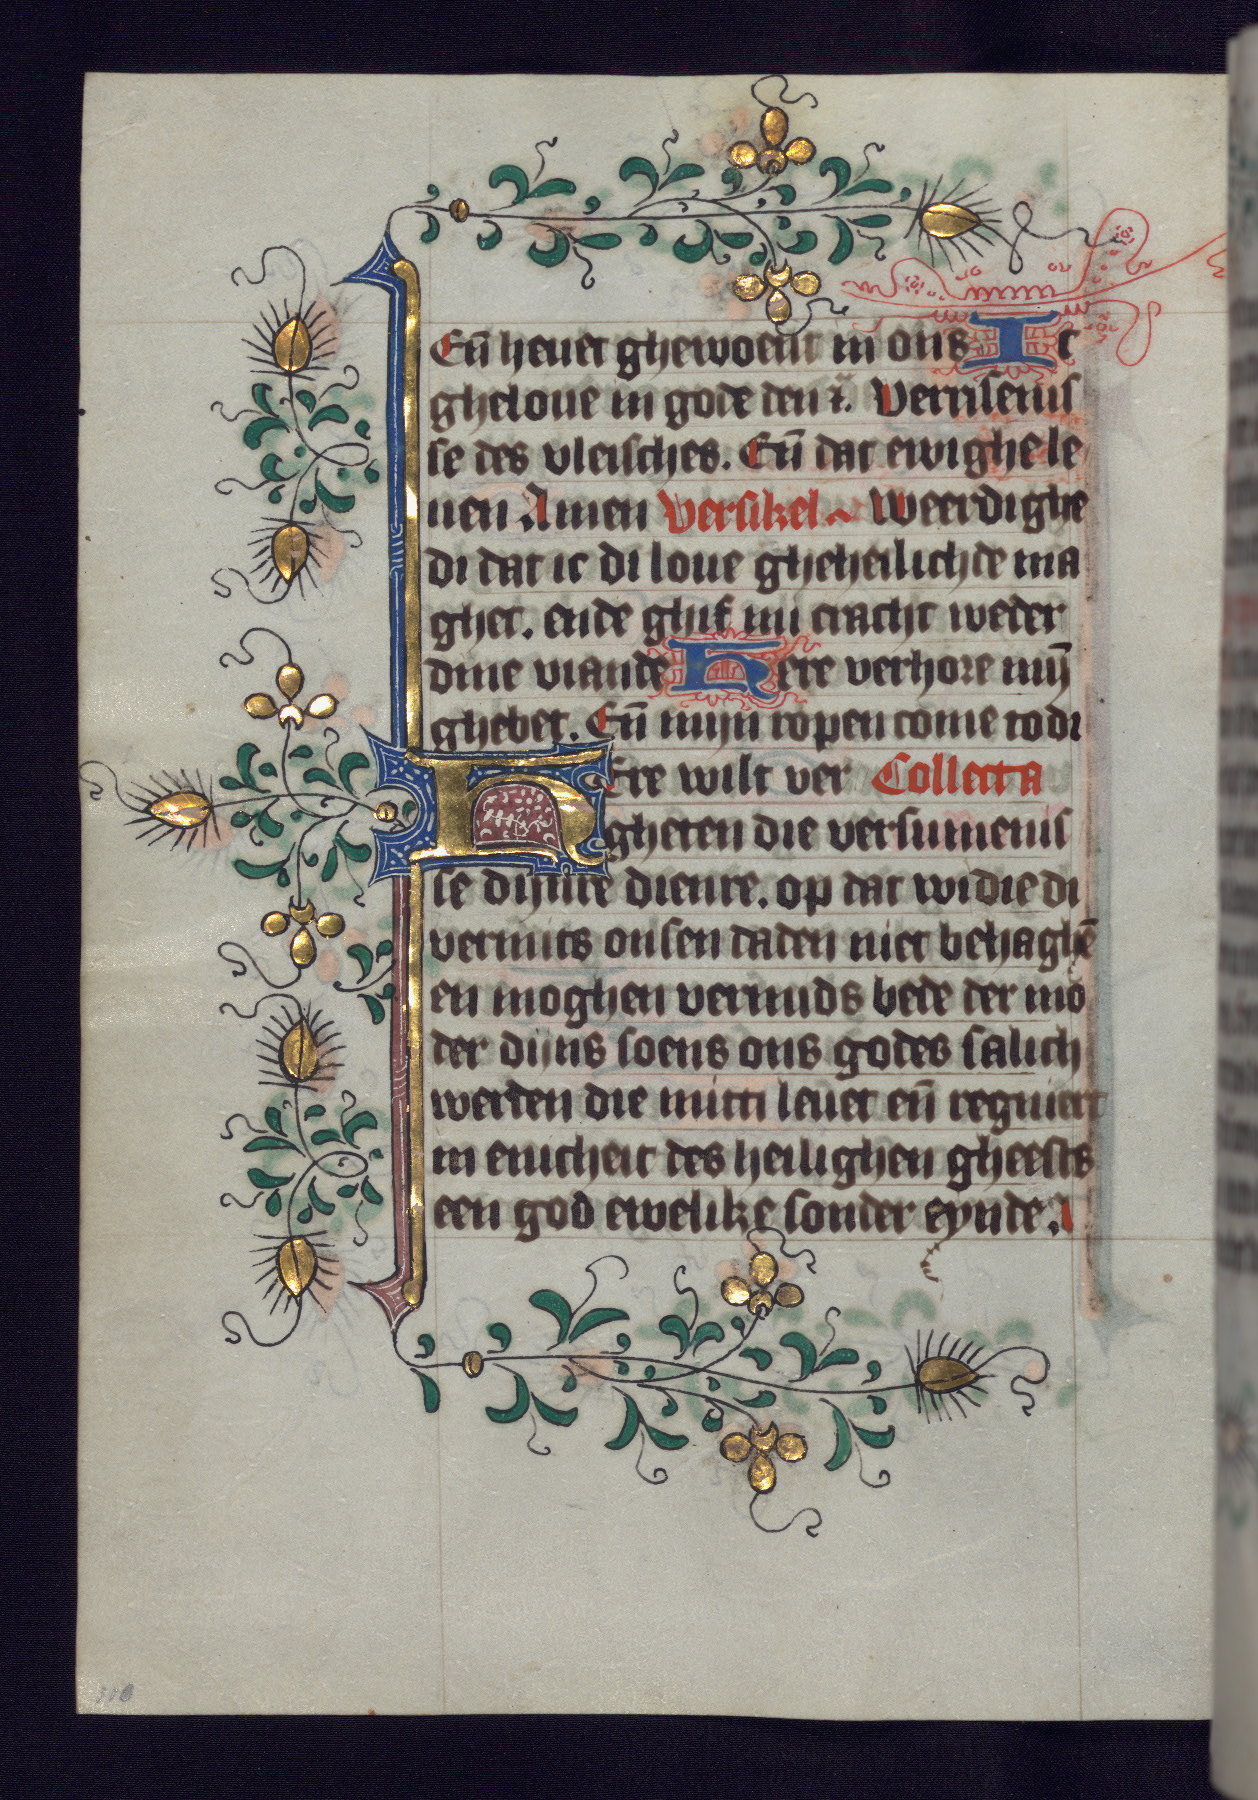 En̄ heuet ghewoent in ons Ic
gheloue in gode den ⁊. Verrisenis
se des vleisches. En̄ dat ewighe le
uen Amen Versikel Weerdighe
di dat ic di loue gheheilichde ma
ghet. ende ghif mi cracht weder
dine viande Here verhore mijn
ghebet. En̄ mijn ropen come to di
HEre wilt ver Collecta
gheuen die versumenis
se dijnre dienre. op dat wi die di
vermits onsen daden niet behaghē
en moghen vermids bede der mo
der dijns soens ons godes salich
werden die mitti leuet en̄ regniert
in enicheit des heilighen gheests
een god ewelike sonder eynde. A